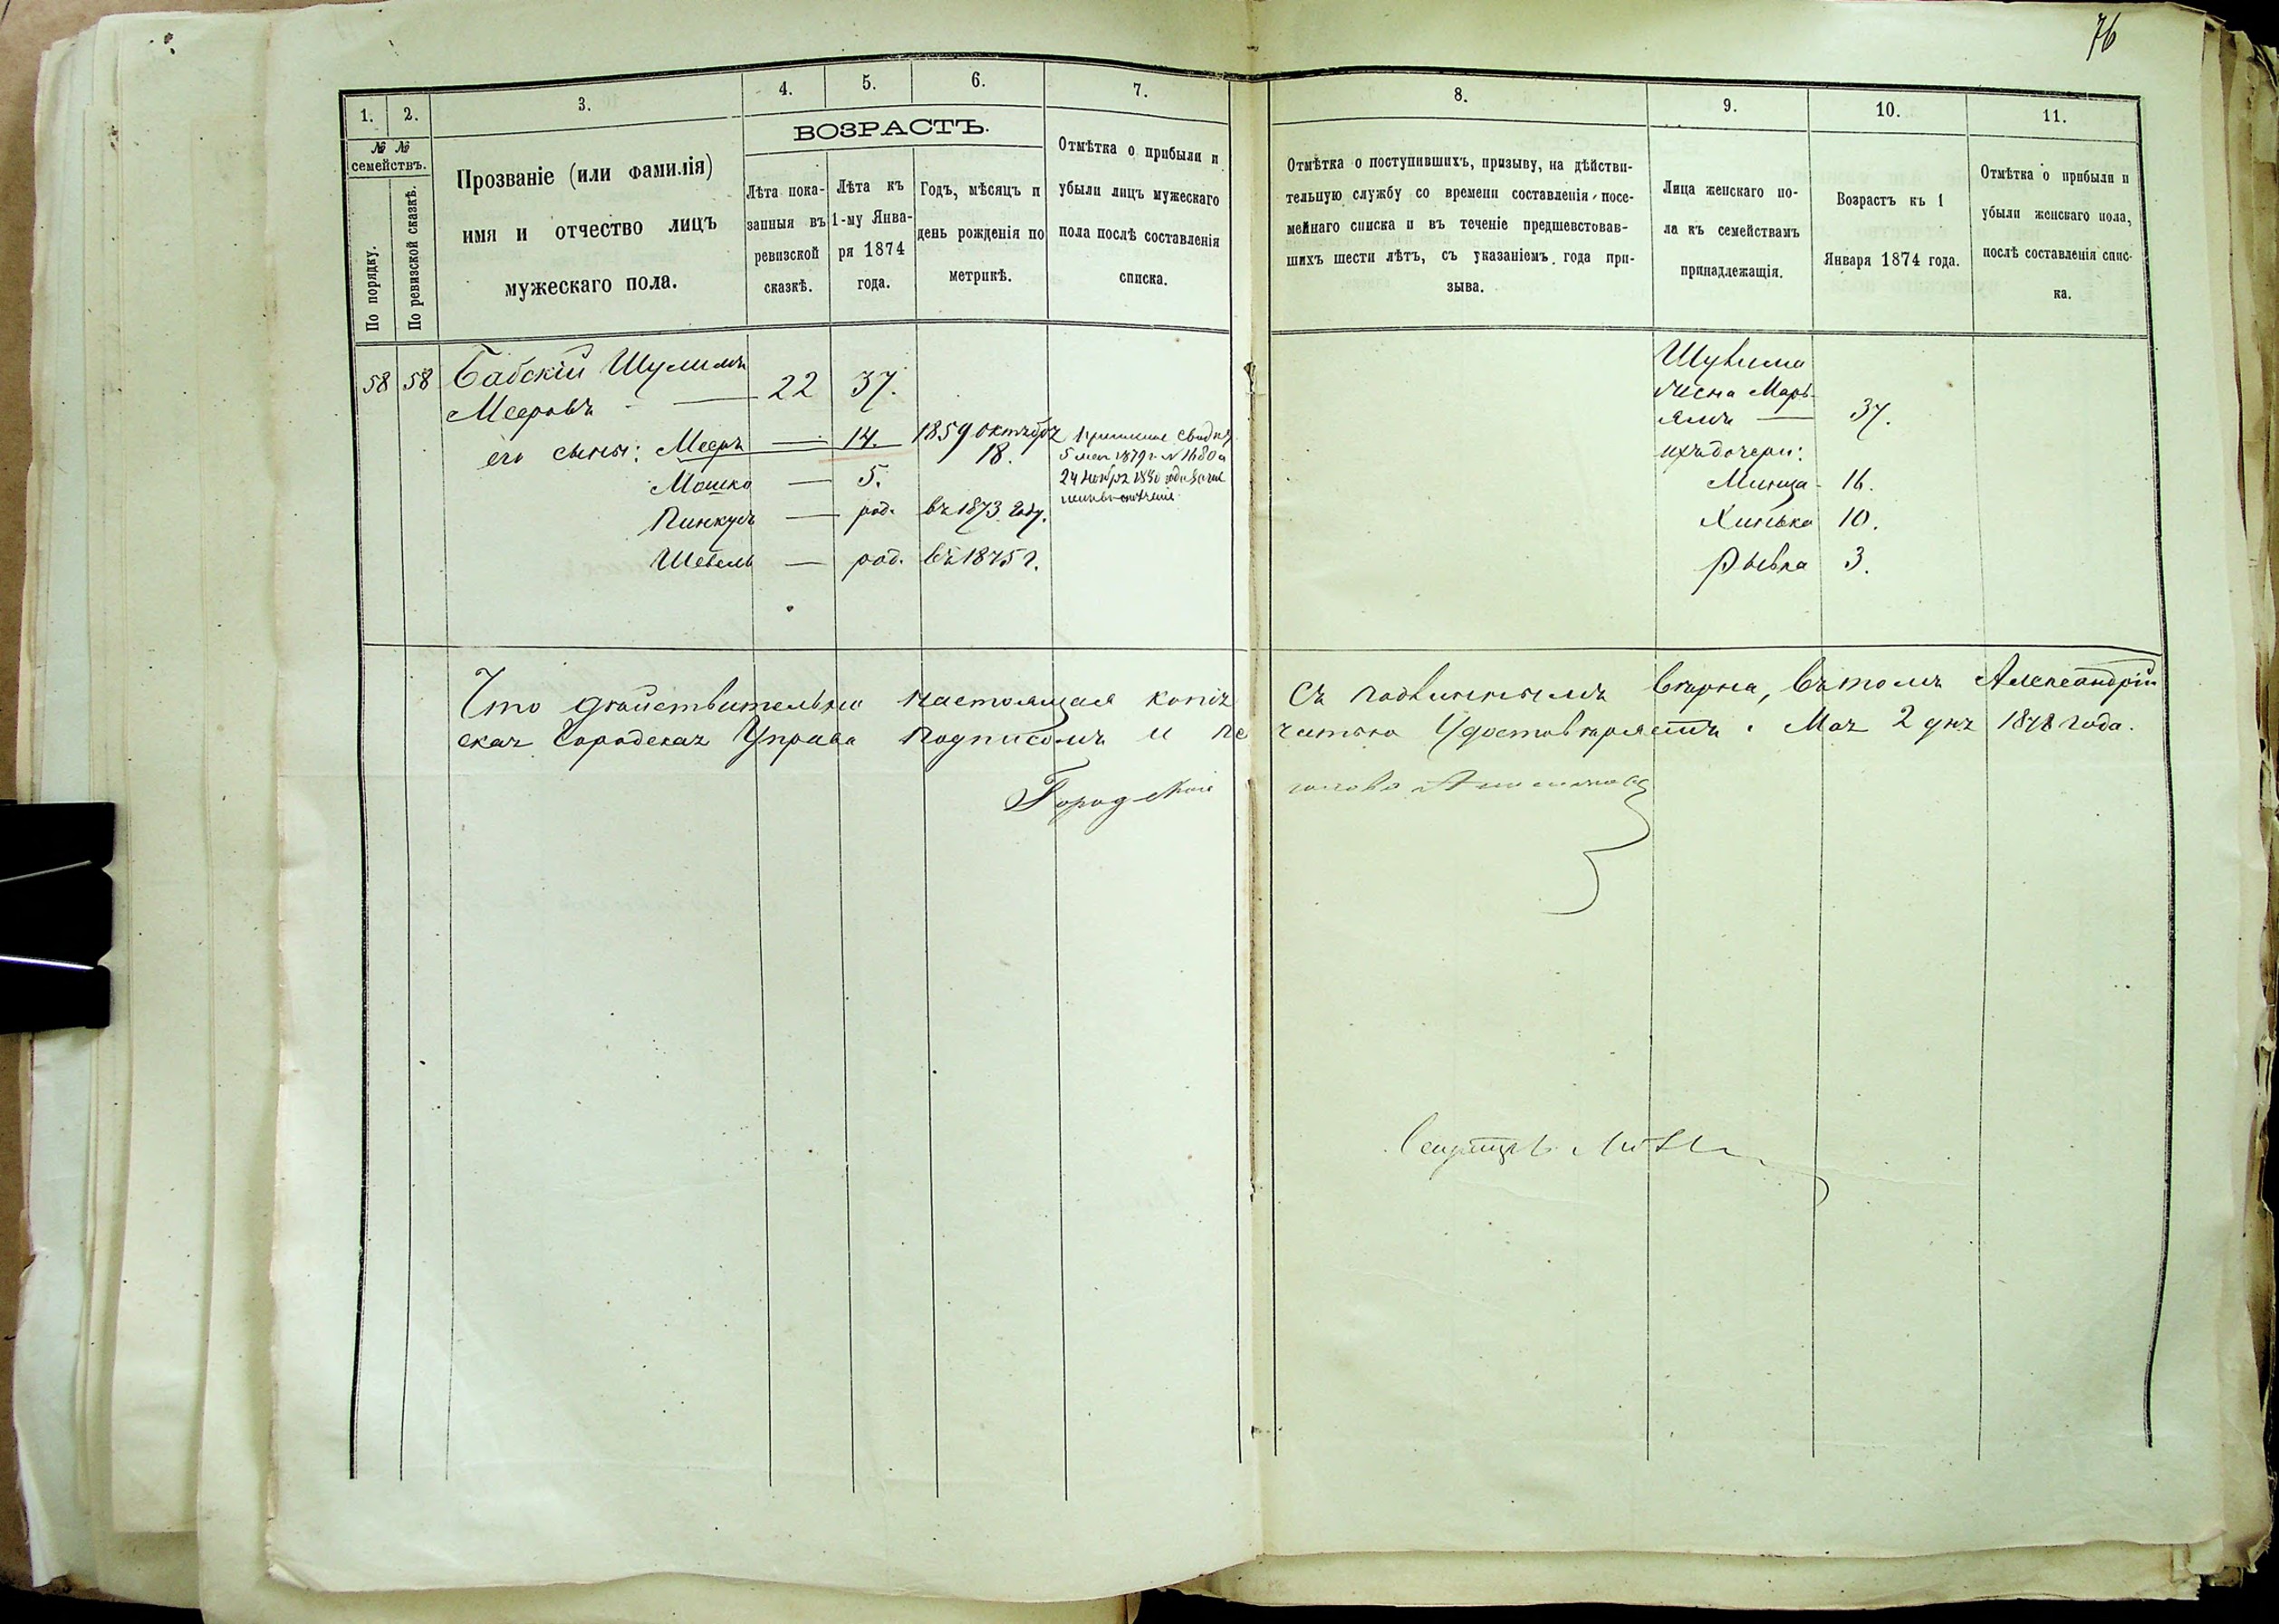 76
1. 2. 3. 4. 5. 6. 7. 8. 9. 10. 11.
№ №
семействъ.
По порядку.
По ревизской сказкѣ.
Прозваніе (или фамилія)
имя и отчество лицъ
мужескаго пола.
ВОЗРАСТЪ.
Лѣта пока-
занныя въ
ревизской
сказкѣ.
Лѣта къ
1-му Янва-
ря 1874
года.
Годъ, мѣсяцъ и
день рожденія по
метрикѣ.
Отмѣтка о прибыли и
убыли лицъ мужескаго
пола послѣ составленія
списка.
Отмѣтка о поступившихъ, призыву, на дѣйстви-
тельную службу со времени составленія посе-
мейнаго списка и въ теченіе предшевствовав-
шихъ шести лѣтъ, съ указаніемъ года при-
зыва.
Лица женскаго по-
ла къ семействамъ
принадлежащія.
Возрастъ къ 1
Января 1874 года.
Отмѣтка о прибыли и
убыли женскаго пола,
послѣ составленія спис-
ка.
58 58 Бабскій Шулимъ
Мееровъ — 22 37.
его сыны: Мееръ — 14. 1859 октября
18.
5 мая 1879 г. № 1680
24 ноября 1880
Мошко — 5.
Пинкусъ — род. въ 1873 году.
Шевель — род. въ 1875 г.
Шулима
жена Марь-
ямъ — 37.
ихъ дочери:
Минца 16.
Хинька 10.
Рывка 3.
Что дѣйствительно настоящая копія съ подлиннымъ вѣрна, въ томъ Александрій
ская Городская Управа подписомъ и печатью удостовѣряетъ. Мая 2 дня 1878 года.
Городской голова
Секретарь